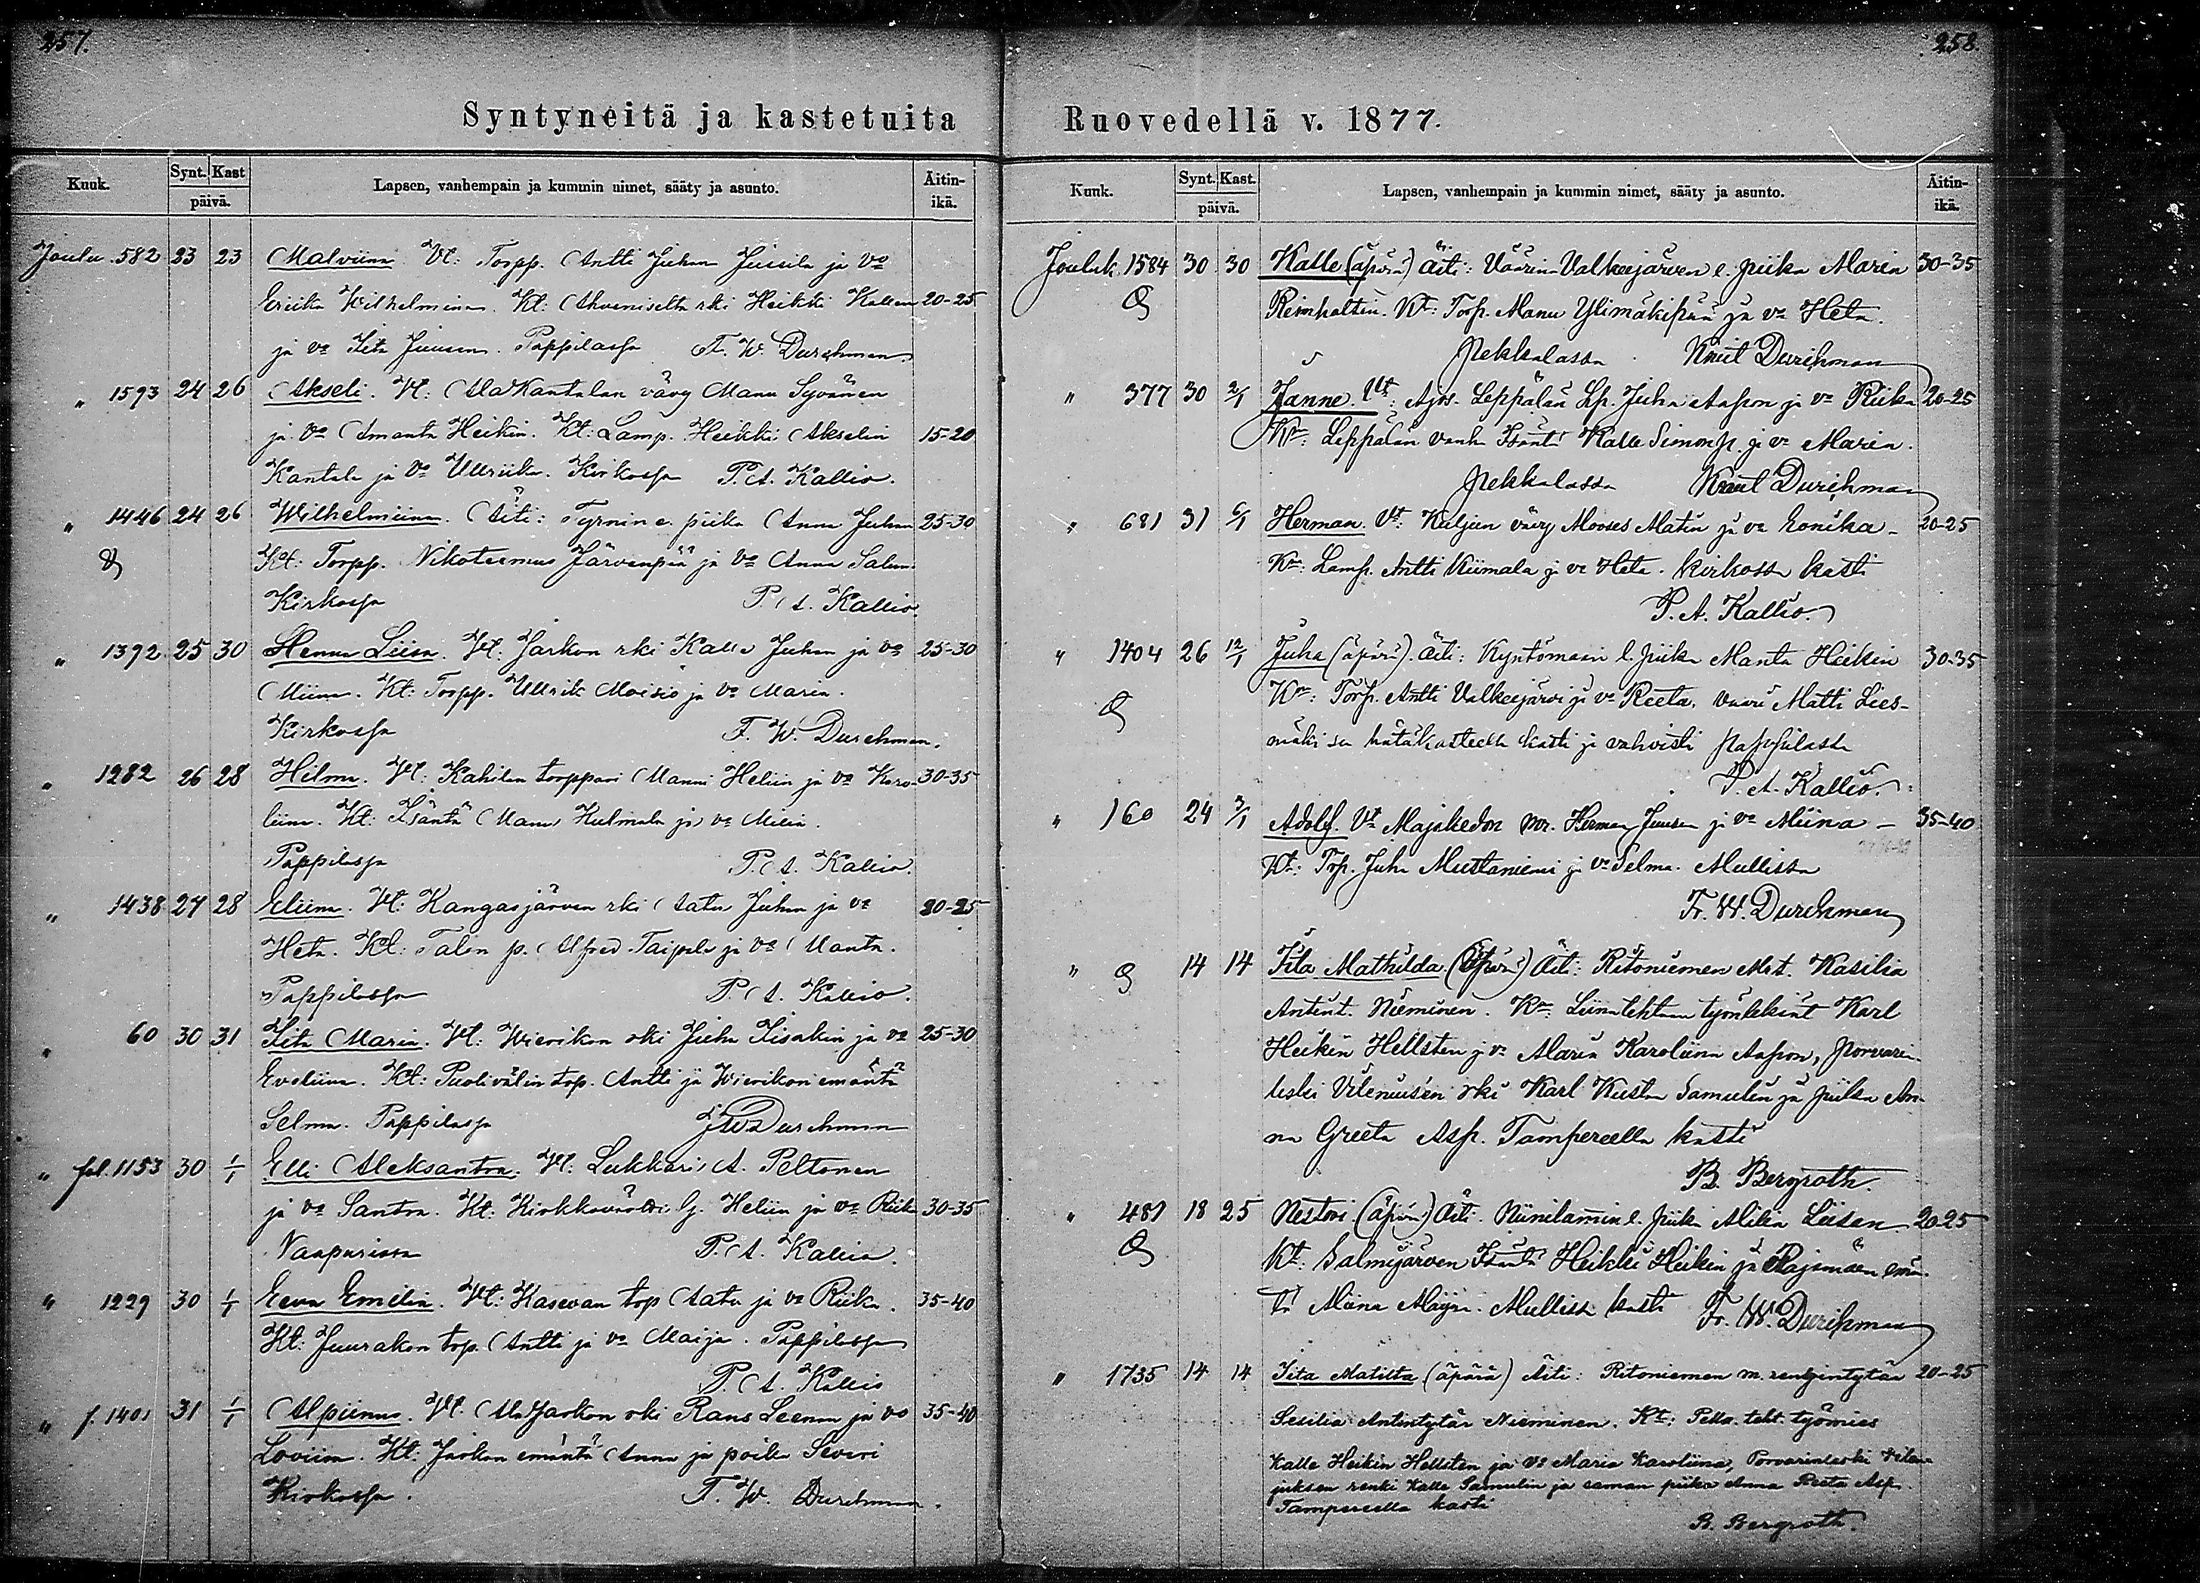 257.
Syntyneitä ja kastetuita
Kuuk. Synt. Kast päivä. Lapsen, vanhempain ja kummin nimet, sääty ja asunto. Äitin-ikä.
Joulu. 582 23 23 Malviina Vt: Torpp. Antti Juhan Jussila ja vo
Eriika Wilhelmiina. Kt: Ahveniselta rki Heikki Kallen 20-25
ja vo Iita Juusen. Pappilassa F. W. Durchman
" 1593 24 26 Akseli. Vt: AlaKantalan vävy Manu Syvänen
ja vo Amanta Heikin. Kt: Lamp. Heikki Akselin 15-20
Kantala ja vo Ullriika. Kirkossa P. A. Kallio.
" 1446 24 26 Wilhelmiina. Äiti: Tyrnin e. piika Anna Juhan 25-30
Kt: Torpp. Nikoteemus Järvenpää ja vo Anna Salom.
Kirkossa P. A. Kallio.
" 1392 25 30 Henna Liisa. Vt: Jarkon rki Kalle Juhan ja vo 25-30
Miina. Kt: Torpp. Ullrik Moisio ja vo Maria.
Kirkossa F. W. Durchman.
" 1282 26 28 Hilma. Vt: Kahilan torppari Manni Heliin ja vo Karo- 30-35
liina. Kt: Isäntä Manu Hulmala ja vo Miina.
Pappilassa P. A. Kallio.
" 1438 27 28 Eliina. Vt: Kangasjärven rki Aatu Juhan ja vo 20-25
Heta. Kt: Talon p. Alfred Taipale ja vo Manta.
Pappilassa P. A. Kallio.
" 60 30 31 Iita Maria. Vt: Wierikon rki Juha Iisakin ja vo 25-30
Eveliina. Kt: Puolivälin torp. Antti ja Wierikon emäntä
Selma. Pappilassa F W Durchman
" fol. 1153 30 1/1 Elli Aleksantra. Vt: Lukkari A. Peltonen
ja vo Santra. Kt: Kirkkoväärti G. Heliin ja vo Riika 30-35
Naapurissa P. A. Kallio.
" 1229 30 1/1 Eeva Emilia. Vt: Kasevan torp Aatu ja vo Riika. 35-40
Kt: Juurakon torp. Antti ja vo Maija. Pappilassa
P. A. Kallio
" f. 1401 31 1/1 Alpiinus. Vt. AlaJarkon rki Rans Leenan ja vo 35-40
Loviisa. Kt: Jarkon emäntä Anna ja poika Severi
Kirkossa. F. W. Durchman.
258.
Ruovedellä v. 1877.
Kuuk. Synt. Kast. päivä. Lapsen, vanhempain ja kummin nimet, sääty ja asunto. Äitin-ikä.
Jouluk. 1584 30 30 Kalle (äpärä) Äiti: Väärin Valkeejärven e. piika Maria 30-35
Reinholtin. Kt: Torp. Manu Ylimäkipää ja vo Heta.
Pekkalassa Knut Durchman
" 377 30 2/1 Janne Vt: Ajos-Leppälän Lp. Juha Aapon ja vo Riika 20-25
Kt: Leppälän vanh. Isäntä Kalle Simonp. ja vo Maria.
Pekkalassa Knut Durchman
" 681 31 6/1 Herman. Vt: Kuljun vävy Mooses Matin ja vo Eonika - 20-25
Kt: Lamp. Antti Kiimala ja vo Heta. kirkossa kasti
P. A. Kallio.
" 1404 26 12/1 Juha (äpärä). Äiti: Kyntömaan e. piika Manta Heikin 30-35
Kt: Torp. Antti Valkeejärvi ja vo Reeta. Vaari Matti Lies-
mäki sen hätäkasteella kasti ja vahvisti pappilassa
P. A. Kallio.
" 160 24 3/1 Adolf. Vt Majakedon mr. Herman Juusen ja vo Miina - 35-40
Kt: Trp. Juha Mustaniemi ja vo Selma. Mullissa
Fr. W. Durchman
" 14 14 Iita Mathilda (äpärä) Äiti: Ritoniemen Mst. Kasilia
Antint. Nieminen. Kt: Liinatehtaan työntekiät Karl
Heikin Hellsten ja vo Maria Karoliina Aapon, Porvarin
leski Vileniusen rki Karl Kustaa Samulin ja piika An-
na Greeta Asp. Tampereella kasti
B. Bergroth.
" 481 18 25 Nestori (äpärä) Äiti. Niinilammin e. piika Miina Liisan 20-25
Kt: Salmijärven Isäntä Heikki Heikin ja Rajamäen emän-
tä Miina Maijan. Mullissa kasti Fr. W. Durchman
" 1735 14 14 Iita Matilta (äpärä) Äiti: Ritoniemen m. rengintytär 20-25
Sesilia Antintytär Nieminen. Kt: Pella. teht. työmies
Kalle Heikin Hellsten ja Vo Maria Karoliina, Porvarinleski Vilen-
juksen renki Kalle Samulin ja saman piika Anna Reeta Asp.
Tampereella kasti
B. Bergroth.